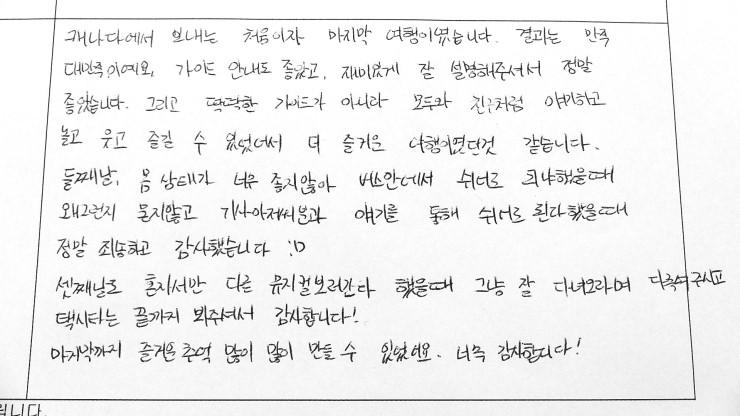 캐나다에서 보내는 처음이자 마지막 여행이였습니다. 결과는 만족
대만족이예요. 가이드 안내도 좋았고, 재미있게 잘 설명해주셔서 정말
좋았습니다. 그리고 딱딱한 가이드가 아니라 모두와 친구처럼 얘기하고
놀고 웃고 즐길 수 있었어서 더 즐거운 여행이였던것 같습니다.
둘째날, 몸 상태가 너무 좋지않아 버스안에서 쉬어도 되냐했을때
왜그런지 묻지않고 기사아저씨분과 얘기를 통해 쉬어도 된다했을때
정말 죄송하고 감사했습니다 :D
셋째날도 혼자서만 다른 뮤지컬보러간다 했을때 그냥 잘 다녀오라며 다독여주시고
택시타는 끝까지 봐주셔서 감사합니다!
마지막까지 즐거운 추억 많이 많이 만들 수 있었어요. 너무 감사합니다!
립니다.